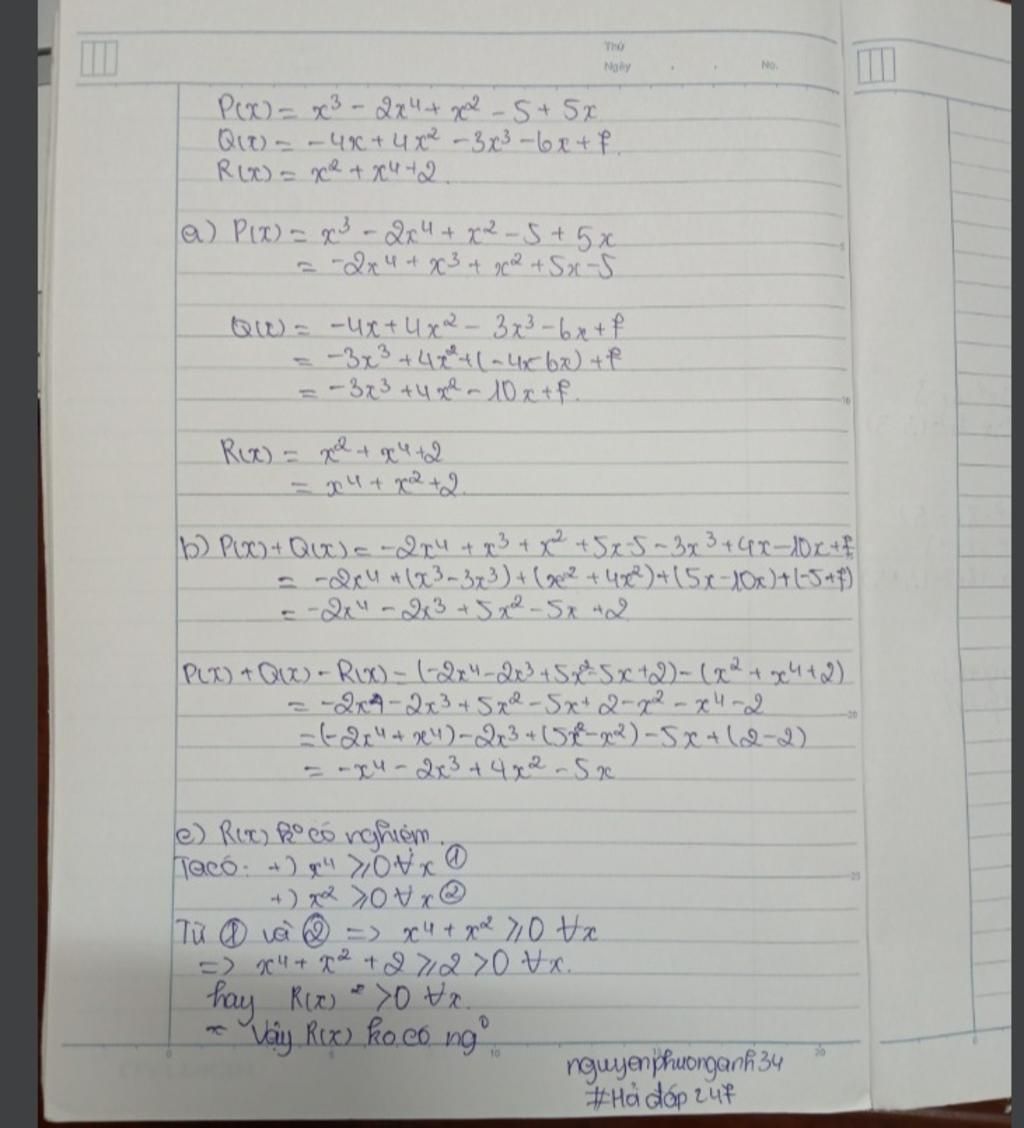 Thứ
Ngày . . No.
P(x) = x³ - 2x⁴ + x² - 5 + 5x
Q(x) = -4x + 4x² - 3x³ - 6x + 7.
R(x) = x² + x⁴ + 2.
a) P(x) = x³ - 2x⁴ + x² - 5 + 5x
= -2x⁴ + x³ + x² + 5x - 5
Q(x) = -4x + 4x² - 3x³ - 6x + 7
= -3x³ + 4x² + (-4x - 6x) + 7
= -3x³ + 4x² - 10x + 7.
R(x) = x² + x⁴ + 2
= x⁴ + x² + 2.
b) P(x) + Q(x) = -2x⁴ + x³ + x² + 5x - 5 - 3x³ + 4x - 10x + 7
= -2x⁴ + (x³ - 3x³) + (x² + 4x²) + (5x - 10x) + (-5 + 7)
= -2x⁴ - 2x³ + 5x² - 5x + 2
P(x) + Q(x) - R(x) = (-2x⁴ - 2x³ + 5x² - 5x + 2) - (x² + x⁴ + 2)
= -2x⁴ - 2x³ + 5x² - 5x + 2 - x² - x⁴ - 2
= (-2x⁴ + x⁴) - 2x³ + (5x² - x²) - 5x + (2 - 2)
= -x⁴ - 2x³ + 4x² - 5x
c) R(x) k° có nghiệm.
Ta có: +) x⁴ ⩾ 0 ∀ x ①
+) x² ⩾ 0 ∀ x ②
Từ ① và ② => x⁴ + x² ⩾ 0 ∀x
=> x⁴ + x² + 2 ⩾ 2 > 0 ∀x.
hay R(x) > 0 ∀x.
Vậy R(x) ko có ng°
0 5 10 20
nguyenphuonganh34
#Hỏi đáp 247